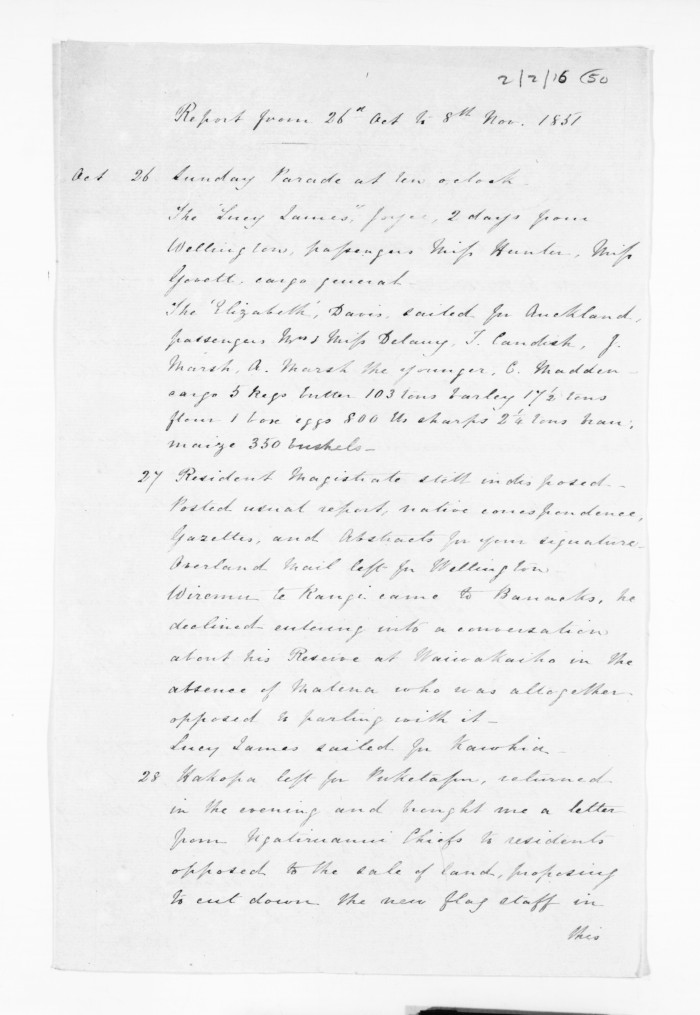 2/2/16 (50
Report from 26th Oct to 8th Nov. 1851
Oct 26 Sunday Parade at ten oclock.
The "Lucy James", Joyce, 2 days from
Wellington, passengers Miss Hunter, Miss
Govett, cargo general.
The 'Elizabeth', Davis, sailed for Auckland,
passengers Mrs & Miss Delany, T. Candish, J.
Marsh, A. Marsh the younger, C. Madden
cargo 5 kegs butter 103 tons barley 17½ tons
flour 1 box eggs 800 lbs sharps 2¼ tons bran,
maize 350 bushels-
27 Resident Magistrate still indisposed-
Posted usual report, native correspondence,
Gazettes, and Abstracts for your signature-
Overland Mail left for Wellington-
Wiremu te Rangi came to Barracks, he
declined entering into a conversation
about his Reserve at Waiwakaiho in the
absence of Matena who was altogether
opposed to parting with it-
Lucy James sailed for Kawhia-
28 Hakopa left for Puketapu, returned
in the evening and brought me a letter
from Ngatiruanui Chiefs to residents
opposed to the sale of land, proposing
to cut down the new flag staff in
this